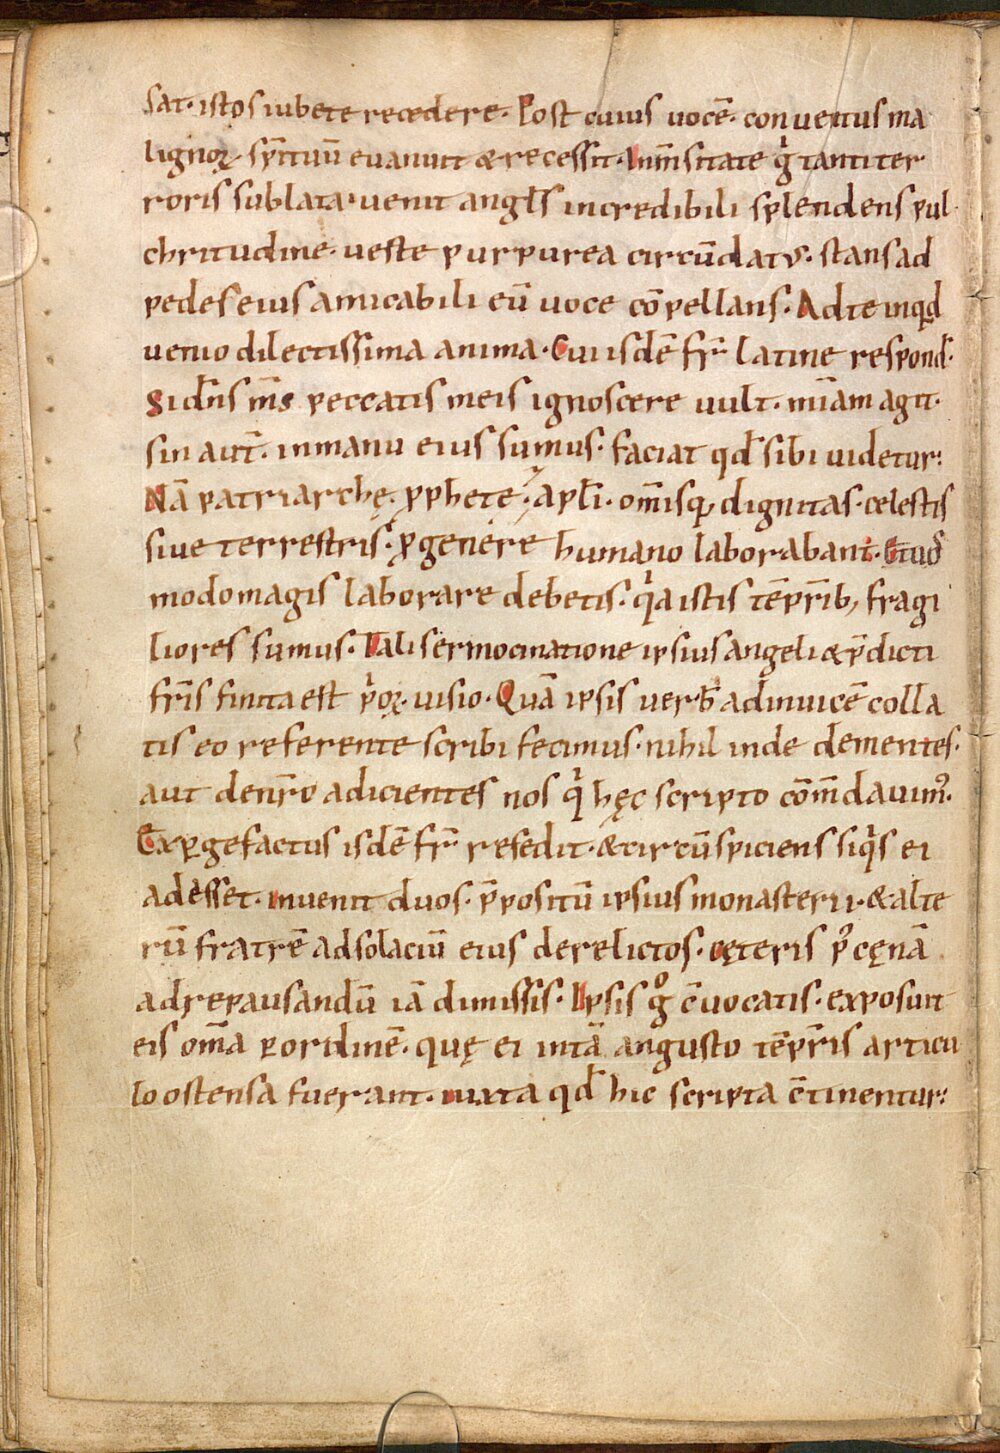 sat· istos iubete recedere· Post cuius uocē· conuentus ma
lignoꝝ· sp̄ituū euanuit & recessit· Inm̄sitate gͥ tanti ter
roris sublata· uenit angl̄s incredibili splendens pul
chritudine· ueste purpurea circūdatꝰ· stans ad
pedes eius amicabili eū uoce cōpellans· Ad te inqͥd
uenio dilectissima anima· Cui isdē fr̄ latine respond̄·
Si dn̄s m̄s peccatis meis ignoscere uult· mīam agit·
sin aut̄· in manu eius sumus· faciat qd̄ sibi uidetur:
Nā patriarchę· ꝓphete· apl̄i· om̄isq; dignitas· celestis
siue terrestris· ꝓ genere humano laborabant·
modo magis laborare debetis· qͥa istis tēpr̄ib; fragi
liores sumus· Tali sermocinatione ipsius angeli & p̄dicti
fr̄is finita est pͥoꝝ· uisio· Quā ipsis uerb̄ adinuicē colla
tis eo referente scribi fecimus· nihil inde dementes·
aut denr̄o adicientes nos qͥ hęc scripto cōm̄dauimꝰ·
Exꝑgefactus isdē fr̄ resedit· & circūspiciens si qͥs ei
adesset· inuenit duos· p̄positū ipsius monasterii· & alte
rū fratrē ad solaciū eius derelictos· cęteris pꝰ cęnā
ad repausandū iā dimissis· Ipsis gͦ c̄uocatis· exposuit
eis om̄a ꝑ ordinē· quę ei intā angusto tēpr̄is articu
lo ostensa fuerant· iuxta qd̄ hic scripta c̄tinentur: